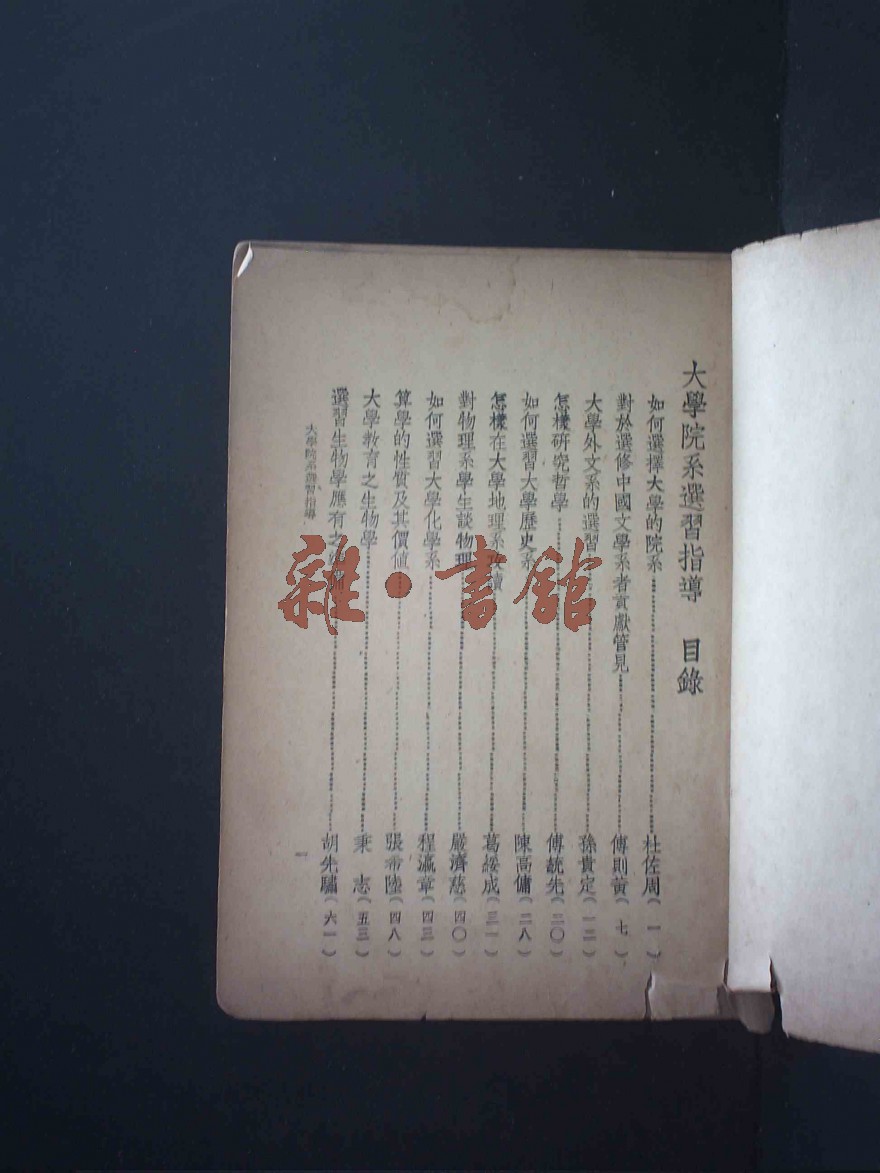 大學院系選習指導　目錄
如何選擇大學的院系 杜佐周(一)
對於選修中國文學系者貢獻管見 傅則黃(七)
大學外文系的選習 孫貴定(一二)
怎樣研究哲學 傅統先(二〇)
如何選習大學歷史系 陳高傭(二八)
怎樣在大學地理系 葛綏成(三一)
對物理系學生談物理 嚴濟慈(四〇)
如何選習大學化學系 程瀛章(四三)
算學的性質及其價値 張希陸(四八)
大學教育之生物學 秉　志(五三)
選習生物學應有之 胡先驌(六一)
大學院系選習指導
一
雜·書館